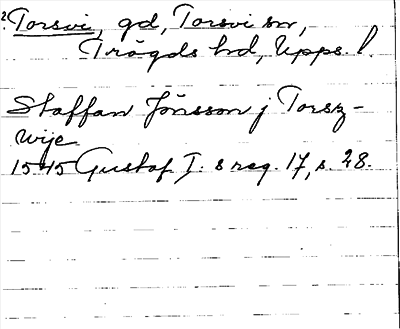 2. Torsvi, gd, Torsvi sn,
Trögds hd, Upps. l.
Staffan Jönsson j Torsz-
wije
1545 Gustaf I:s reg. 17, s. 28.